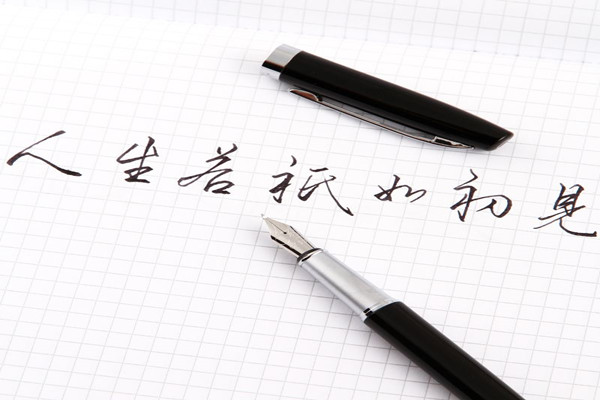 人生若祇如初見